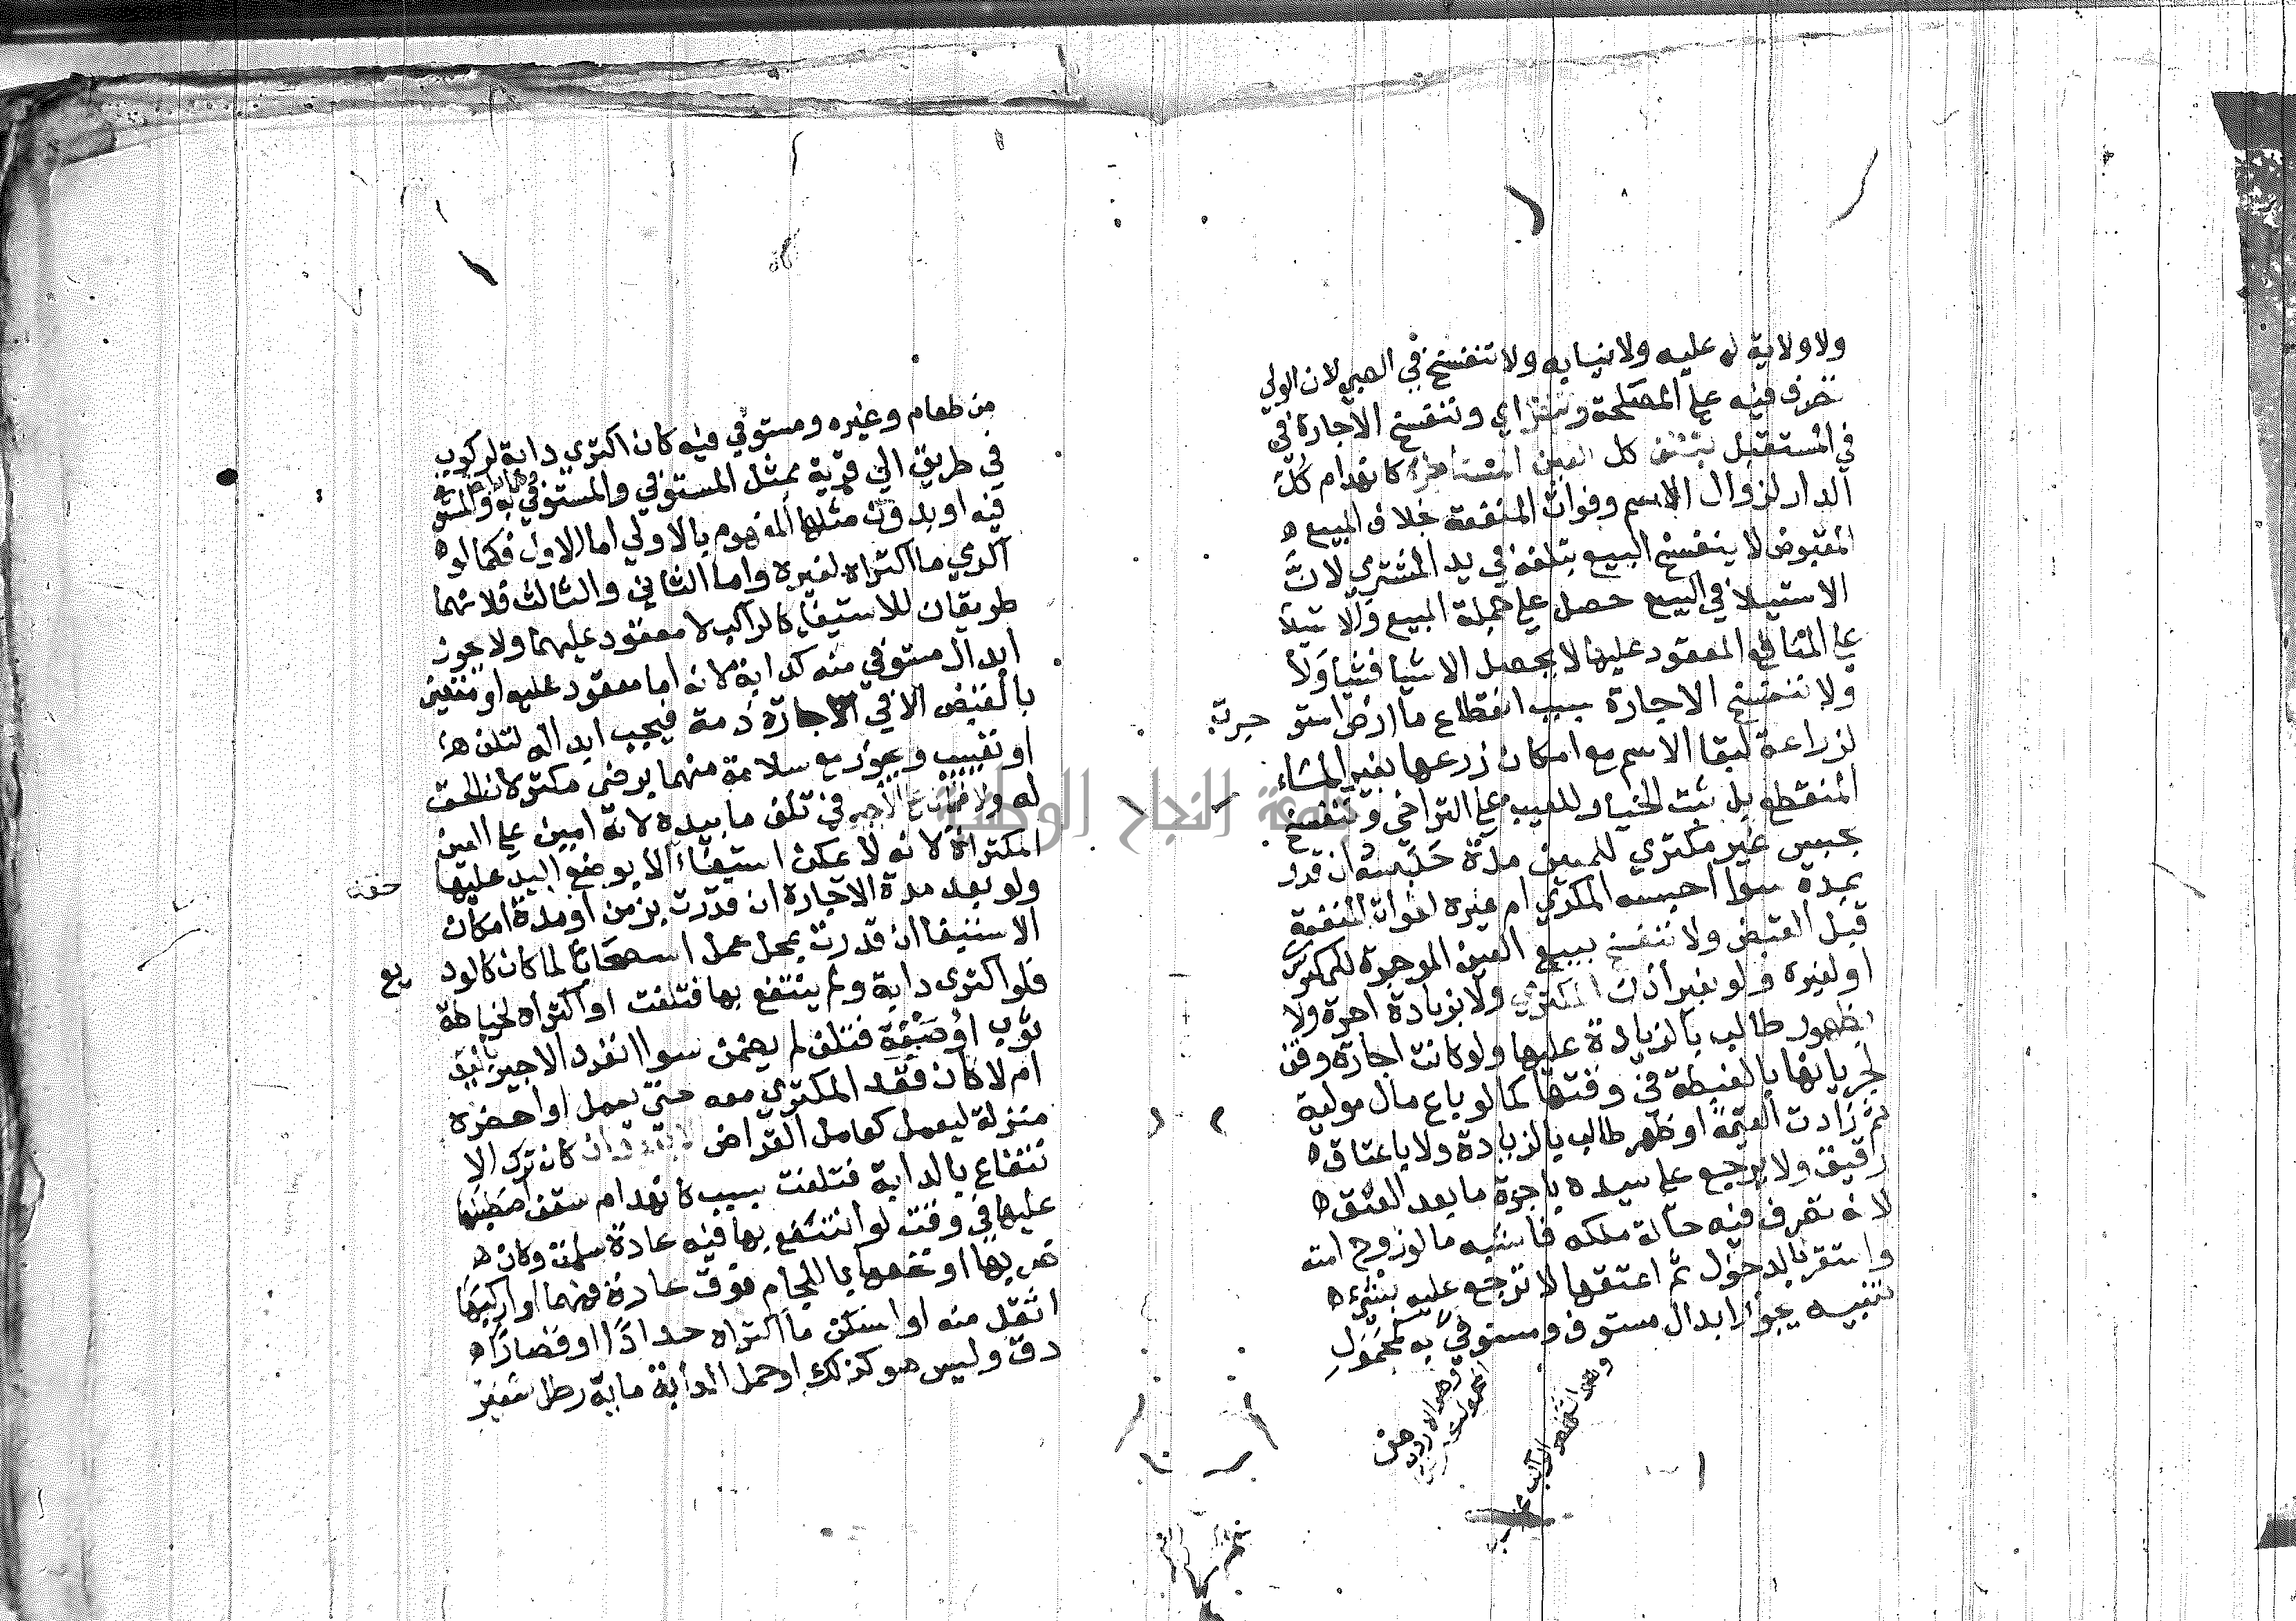 ولا ولاية له عليه ولا نيابه ولا تنفسخ في الصبي لان الولي
تصرف فيه علي المصلحة وتنفسخ الاجارة في
في المستقبل بتلف كل العين المستاجرة كانهدام كل
الدار لزوال الاسم وفوات المنفعة بخلاف المبيع ه
المقبوض لا ينفسخ البيع بتلفه في يد المشتري لان
الاستيلا في البيع حصل علي جملة المبيع والاستيلا
علي المنافع المعقود عليها لا يحصل الا شيا فشيا ولا
ولا تنفسخ الاجارة بسبب انقطاع ما ارض استوجرت
لزراعة لبقا الاسم مع امكان زرعها بغير الماء
المنقطع بل يثبت الخيار للعيب علي التراخي وتنفسخ
بحبس غير مكتري للمعين مدة حبسه ان قدر
بمدة سوا احبسه المكري ام غيره لفوات المنفعة
قبل القبض ولا تنفسخ ببيع العين الموجرة للمكتري
او لغيره ولو بغير اذن المكتري ولا بزيادة اجرة ولا
بظهور طالب بالزيادة عليها ولو كانت اجارة وقف
لجريانها بالغبطة في وقتها كما لو باع مال موليه
ثم زادت القيمة او ظهر طالب بالزيادة ولا باعتاق ه
رقيق ولا يرجع علي سيده باجرة ما بعد العتق ه
لانه تصرف فيه حالة ملكه فاشبه ما لو زوج امته
واستقر بالدخول ثم اعتقها لا ترجع عليه بشيء ه
تنبيه يجوز ابدال مستوف ومستوفي به كمحمول
وهو الشخص الراكب
من
من طعام وغيره ومستوفي فيه كان اكترى دابة لركوب
في طريق الي قرية بمثل المستوفي والمستوفي به والمستوفي
فيه او بدون مثلها المفهوم بالاولي اما الاول فكما لو ه
اكري ما اكتراه لغيره واما الثاني والثالث فلانهما
طريقان للاستيفا كالراكب لا معقود عليهما ولا يجوز
ابدال مستوفي منه كدابة لانه اما معقود عليه او متعين
بالقبض الا في الاجارة ذمة فيجب ابداله لتلف ه
او تعييب ويجوز مع سلامة منهما برضي مكتر لان الحق
له ولا في تلف ما بيده لانه امين علي العين
المكتراة لانه لا يمكن استيفاء حقه الا بوضع اليد عليها
ولو بعد مدة الاجارة ان قدرت بزمن او مدة امكان
الاستيفا ان قدرت بمحل عمل استصحابا لما كان كالوديع
فلو اكترى دابة ولم ينتفع بها فتلفت او اكتراه لخياطة
ثوب او صبغه فتلف لم يضمن سوا انفرد الاجير باليد
ام لا كان قعد المكتري معه حتي يعمل او احضره
منزلة ليعمل كعامل القراض فان كان ترك الا
نتفاع بالدابة فتلفت بسبب كانهدام سقف اصطبلها
عليها في وقت لو انتفع بها فيه عادة سلمت وكان ه
ضربها او نخعها باللجام فوق عادة فيهما او اركبها
اثقل منه او اسكن ما اكتراه حدادا او قصارا ه
دق وليس هو كذلك او حمل الدابة ماية رطل شعير